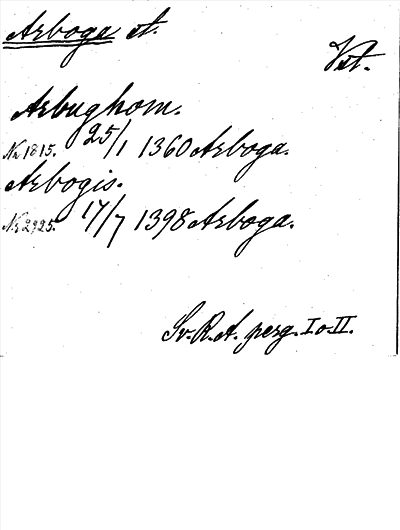 Arboga st.
Vst.
Arbughom.
No 1815. 25/1 1360 Arboga.
Arbogis.
No 2925. 17/7 1398 Arboga.
Sv. R. A. perg. I o. II.